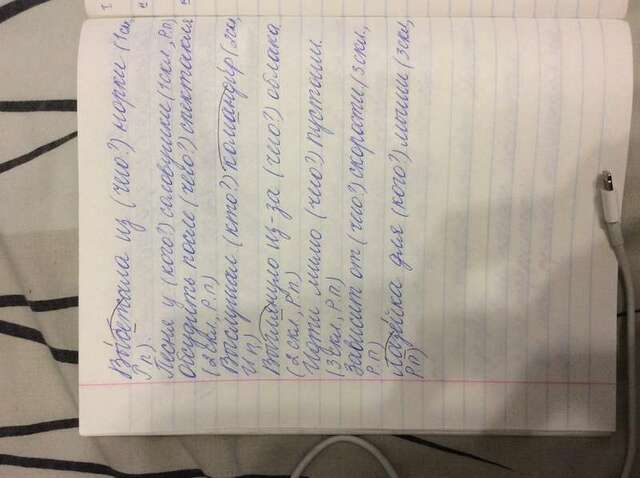 Выбежала из (чего?) норки (1 скл,
Р.п).
Песня у (кого?) соловушки (1 скл., Р.п)
Обсудить после (чего?) спектакля
(2 скл., Р.п)
Выслушал (кто?) командир (2 скл,
И.п)
Выглянуло из-за (чего?) облака
(2 скл., Р.п)
Идти мимо (чего?) пустыни.
(3 скл., Р.п)
Зависит от (чего?) скорости (3 скл,
Р.п)
для (кого?) мыши (3 скл,
Р.п)